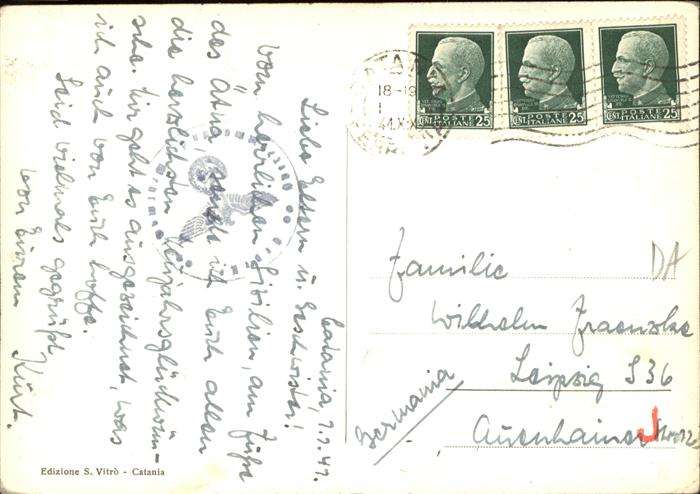 Catania, 7.1.41.
Liebe Eltern u. Geschwister!
Vom herrlichen Sizilien, am Fuße
des Ätna, sende ich Euch allen
die herzlichsten Neujahrsglückwün-
sche. Mir geht es ausgezeichnet, was
ich auch von Euch hoffe.
Seid vielmals gegrüßt
von Eurem Kurt.
POSTE ITALIANE CENT. 25
POSTE ITALIANE CENT. 25
POSTE ITALIANE CENT. 25
18-19
DA
Familie
Wilhelm Fraenzke
Leipzig S 36
Auenhainer
Germania
Edizione S. Vitrò - Catania